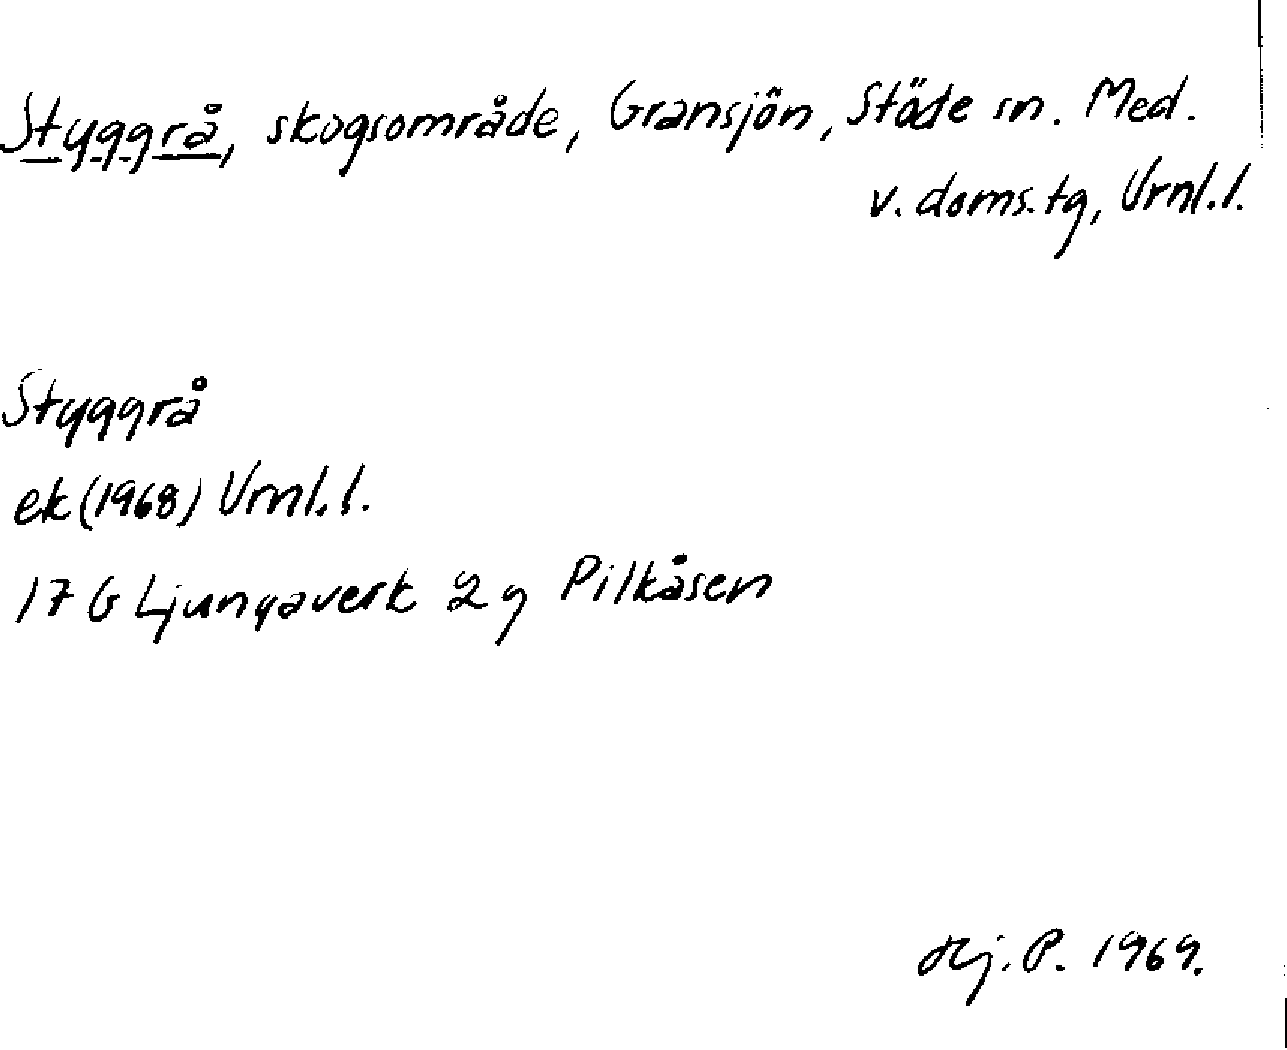 Styggrå, skogsområde, Gransjön, Stöde sn. Med.
v. doms. tg, Vrnl. l.
Styggrå
ek (1968) Vrnl. l.
17 G Ljungaverk 2 g Pilkåsen
Hj. P. 1969.